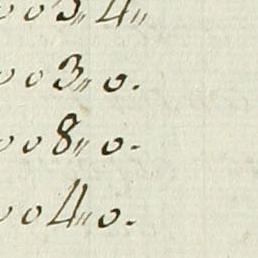 003„4„
003„0.
008„0-
004„0.